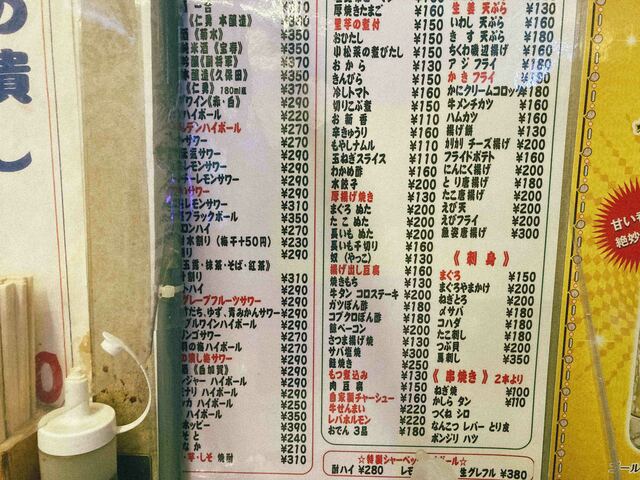 《仁勇 本醸造》 ¥350
《菊水》 ¥350
純米酒《宝寿》 ¥350
¥370
本醸造《久保田》 ¥350
《仁勇》 180ml瓶 ¥370
ワイン《赤・白》 ¥290
ハイボール ¥220
デンハイボール ¥270
サワー ¥290
サワー ¥290
レモンサワー ¥290
レモンサワー ¥290
サワー ¥290
レモンサワー ¥310
ブラックボール ¥350
ロンハイ ¥310
水割り (梅干+50円) ¥230
り ¥290
玉露・抹茶・そば・紅茶》
割り ¥310
トハイ ¥290
グレープフルーツサワー ¥290
すだち、ゆず、青みかんサワー ¥290
プルワインハイボール ¥290
ンゴサワー ¥290
ハイボール ¥290
サワー ¥290
《自加賀》 ¥350
ンジャー ハイボール ¥290
ハイボール ¥290
ハイボール ¥350
ハイボール ¥350
ホッピー ¥390
そと ¥240
なか ¥210
芋・しそ 焼酎 ¥310
厚焼きたまご ¥160
里芋の煮付 ¥160
おひたし ¥150
小松菜の煮びたし ¥160
おから ¥130
きんぴら ¥150
冷しトマト ¥160
切りこぶ煮 ¥150
お新香 ¥110
辛きゅうり ¥160
もやしナムル ¥110
玉ねぎスライス ¥110
わかめ酢 ¥160
水餃子 ¥200
厚揚げ焼き ¥160
まぐろ ぬた ¥200
たこ ぬた ¥200
長いも ぬた ¥200
長いも千切り ¥160
奴 (やっこ) ¥130
揚げ出し豆腐 ¥160
焼きもち ¥130
牛タン コロステーキ ¥200
ガツぽん酢 ¥180
コブクロぽん酢 ¥180
銀ベーコン ¥200
さつま揚げ焼 ¥130
サバ塩焼 ¥300
鮭焼き ¥250
もつ煮込み ¥130
肉豆腐 ¥150
自家製チャーシュー ¥160
牛せんまい ¥220
レバホルモン ¥220
おでん 3品 ¥180
生姜 天ぷら ¥130
いわし 天ぷら ¥160
きす 天ぷら ¥160
ちくわ磯辺揚げ ¥160
アジ フライ
かき フライ
かにクリームコロッケ ¥180
牛メンチカツ ¥160
ハムカツ ¥160
揚げ餅 ¥130
カリカリ チーズ揚げ ¥200
フライドポテト ¥160
にんにく揚げ ¥160
とり唐揚げ ¥180
たこ唐揚げ ¥200
えび天 ¥200
えびフライ ¥200
魚姿唐揚げ ¥200
《刺身》
まぐろ ¥150
まぐろやまかけ ¥200
ねぎとろ ¥200
〆サバ ¥180
コハダ ¥180
たこ刺し ¥180
つぶ貝 ¥200
馬刺し ¥350
《串焼き》 2本より
ねぎ焼 ¥100
かしら タン ¥110
つくね シロ
なんこつ レバー とり皮
ボンジリ ハツ
☆特製シャーベットハイボール☆
酎ハイ ¥280 レモ
生グレフル ¥380
甘い
絶妙